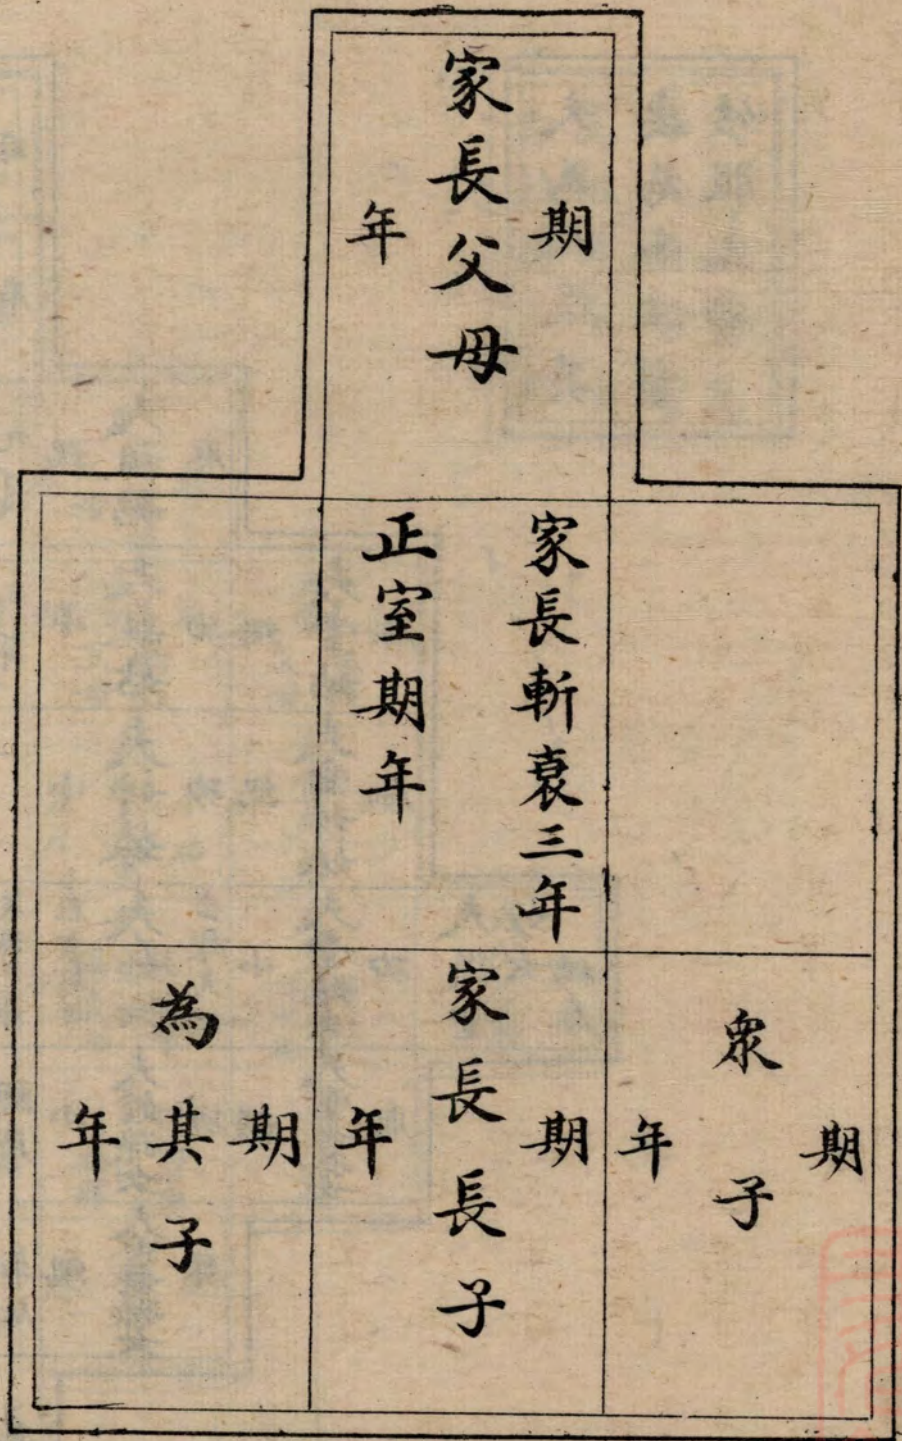 家長父母
期年
家長斬衰三年
正室期年
衆子
期年
家長長子
期年
為其子
期年